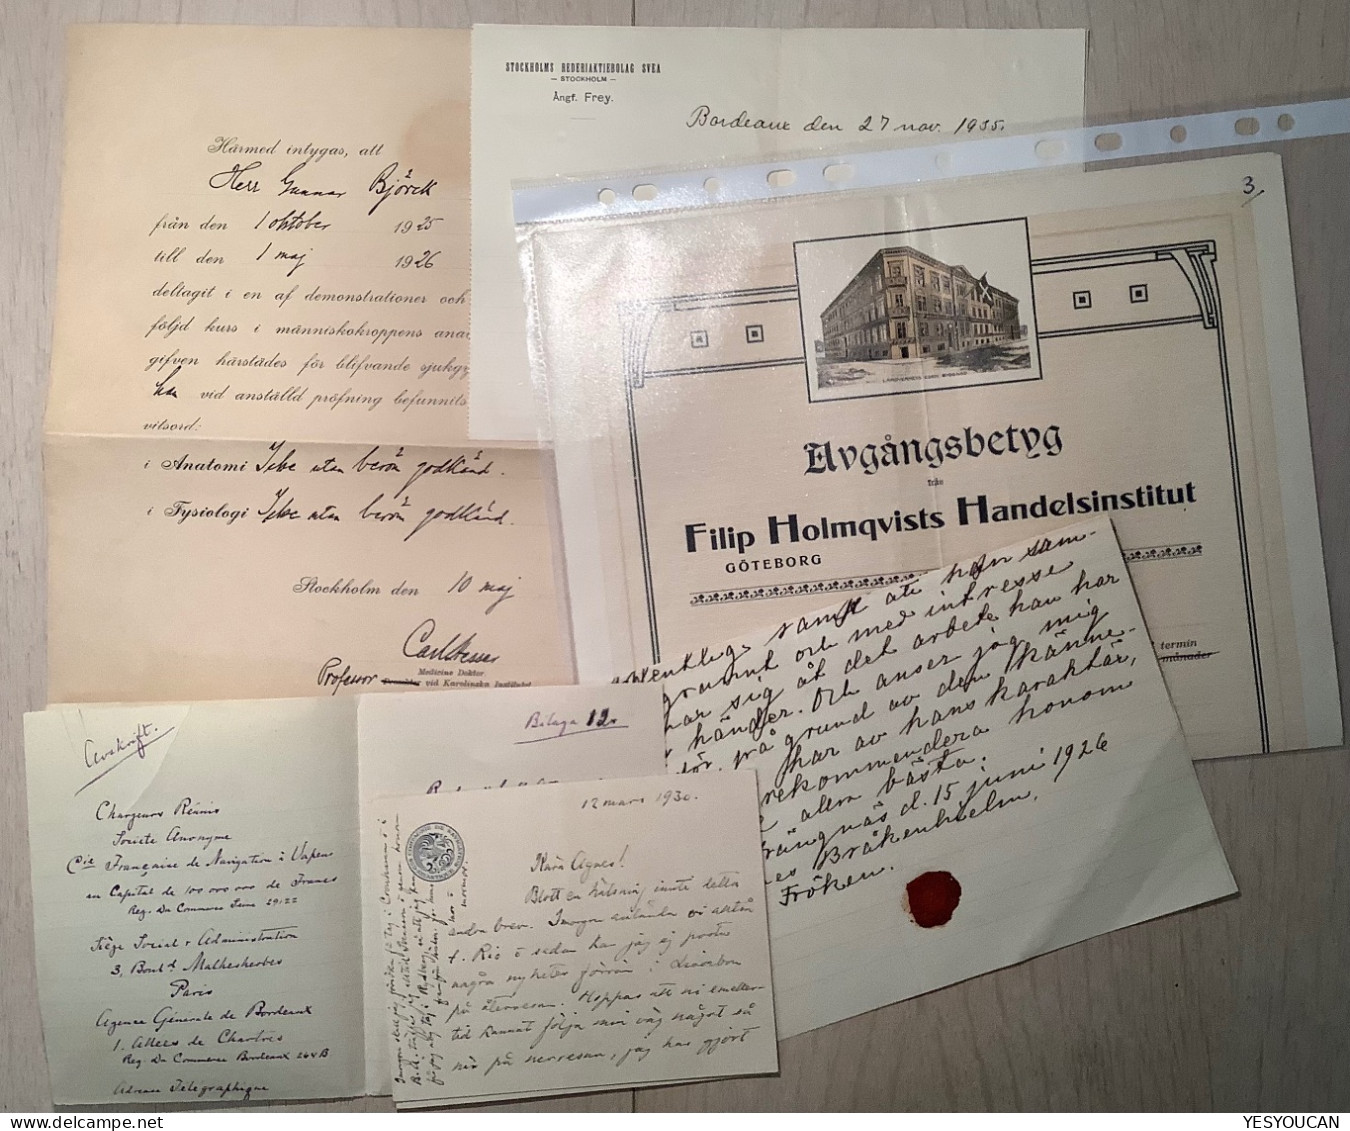 Härmed intygas, att
Herr Gunnar Björck
från den 1 oktober 1925
till den 1 maj 1926
deltagit i en af demonstrationer och
följd kurs i människokroppens ana
gifven härstädes för blifvande sjukgy
han vid anställd pröfning befunnits
vitsord:
i Anatomi Icke utan beröm godkänd.
i Fysiologi Icke utan beröm godkänd.
Stockholm den 10 maj
Medicine Doktor
Professor vid Karolinska Institutet
STOCKHOLMS REDERIAKTIEBOLAG SVEA
— STOCKHOLM —
Ångf. Frey.
Bordeaux den 27 nov. 1935.
3
Avgångsbetyg
från
Filip Holmqvists Handelsinstitut
GÖTEBORG
termin
månader
samt att han sam-
grant och med intresse
har sig åt det arbete han har
händer. Och anser jag mig
för, på grund av den känne-
har av hans karaktär,
rekommendera honom
alla bästa.
ängnäs d. 15 juni 1926
es Bråkenhielm.
Fröken.
Avskrift.
Chargeurs Réunis
Societe Anonyme
Cie Française de Navigation à Vapeur
en Capital de 100 000 000 de Francs
Reg. Du Commerce Seine 29122
Siège Social & Administration
3, Boul.d Malhesherbes
Paris
Agence Générale de Bordeaux
1. Allées de Chartres
Reg. Du Commerce Bordeaux 264 B
Adresse Télegraphique
Bilaga 12.
12 mars 1930.
Kära Agnes!
Blott en hälsning innte detta
andra brev. I morgon anlända vi
t. Rio o sedan kan jag ej posta
några nyheter förrän i Lissabon
på återresan. Hoppas att ni emeller-
tid kunnat följa min väg något så
när på nerresan, jag har gjort
YESYOUCAN